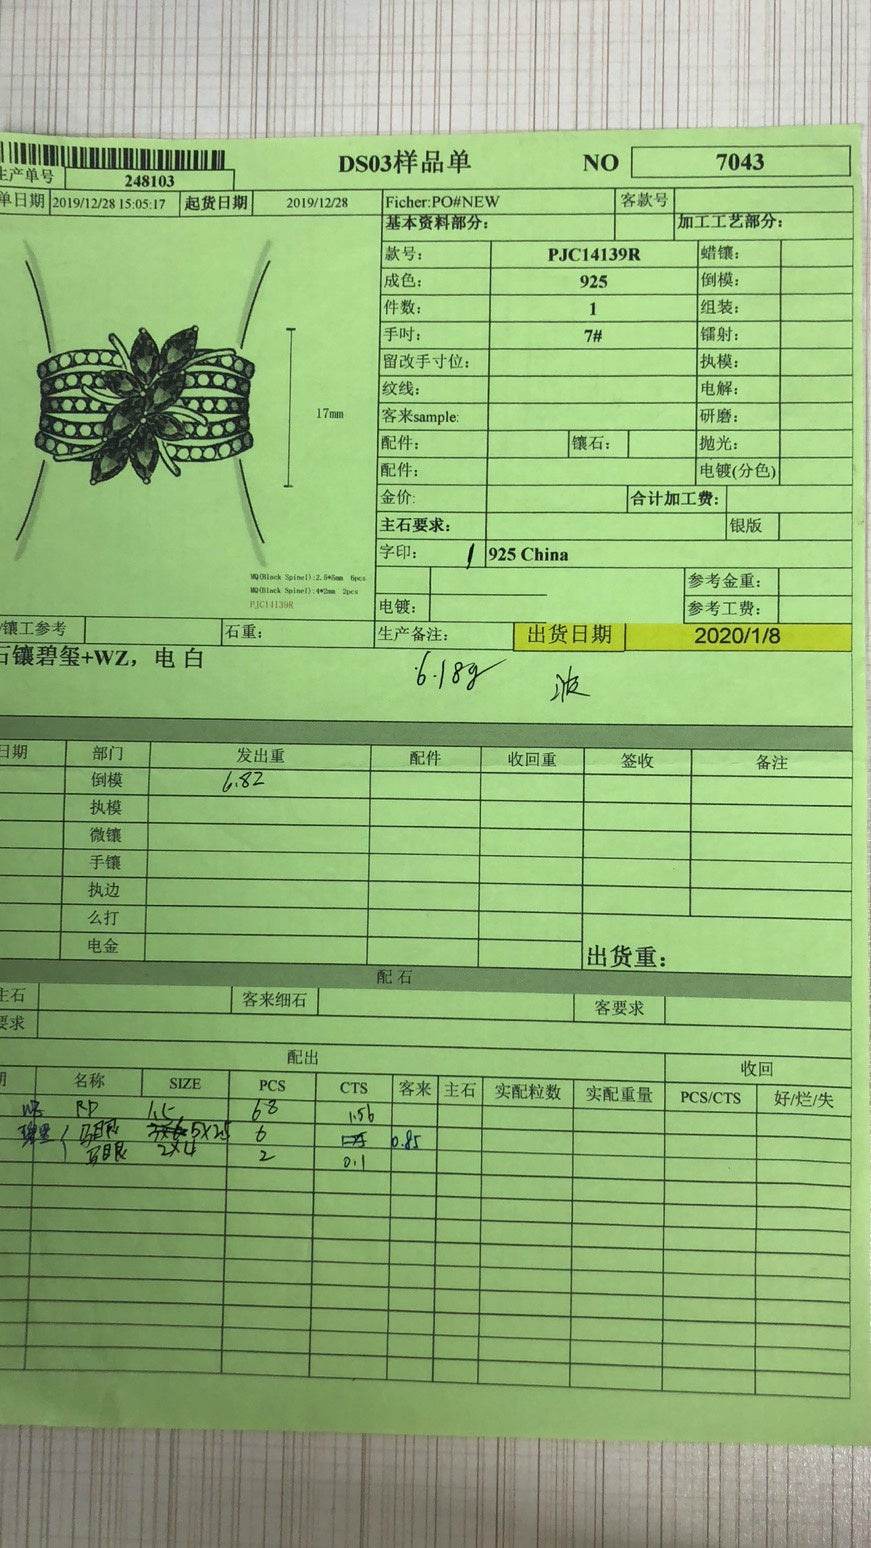 DS03样品单 NO 7043
生产单号 248103
单日期 2019/12/28 15:05:17 起货日期 2019/12/28 Ficher:PO#NEW 客款号
基本资料部分: 加工工艺部分:
款号: PJC14139R 蜡镶:
成色: 925 倒模:
件数: 1 组装:
手吋: 7# 镭射:
留改手寸位: 执模:
纹线: 电解:
客来sample: 研磨:
配件: 镶石: 抛光:
配件: 电镀(分色)
金价: 合计加工费:
主石要求: 银版
字印: 1 925 China
参考金重:
电镀: 参考工费:
17mm
MQ(Black Spinel):2.5*5mm 6pcs
MQ(Black Spinel):4*2mm 2pcs
PJC14139R
/镶工参考 石重: 生产备注: 出货日期 2020/1/8
石镶碧玺+WZ, 电 白
6.18g
日期 部门 发出重 配件 收回重 签收 备注
倒模 6.82
执模
微镶
手镶
执边
么打
电金
出货重:
配 石
主石 客来细石 客要求
要求
配出 收回
名称 SIZE PCS CTS 客来 主石 实配粒数 实配重量 PCS/CTS 好/烂/失
WZ RD 1.5 68 1.56
碧玺 马眼 5X2.5 6 0.85
马眼 2X4 2 0.1